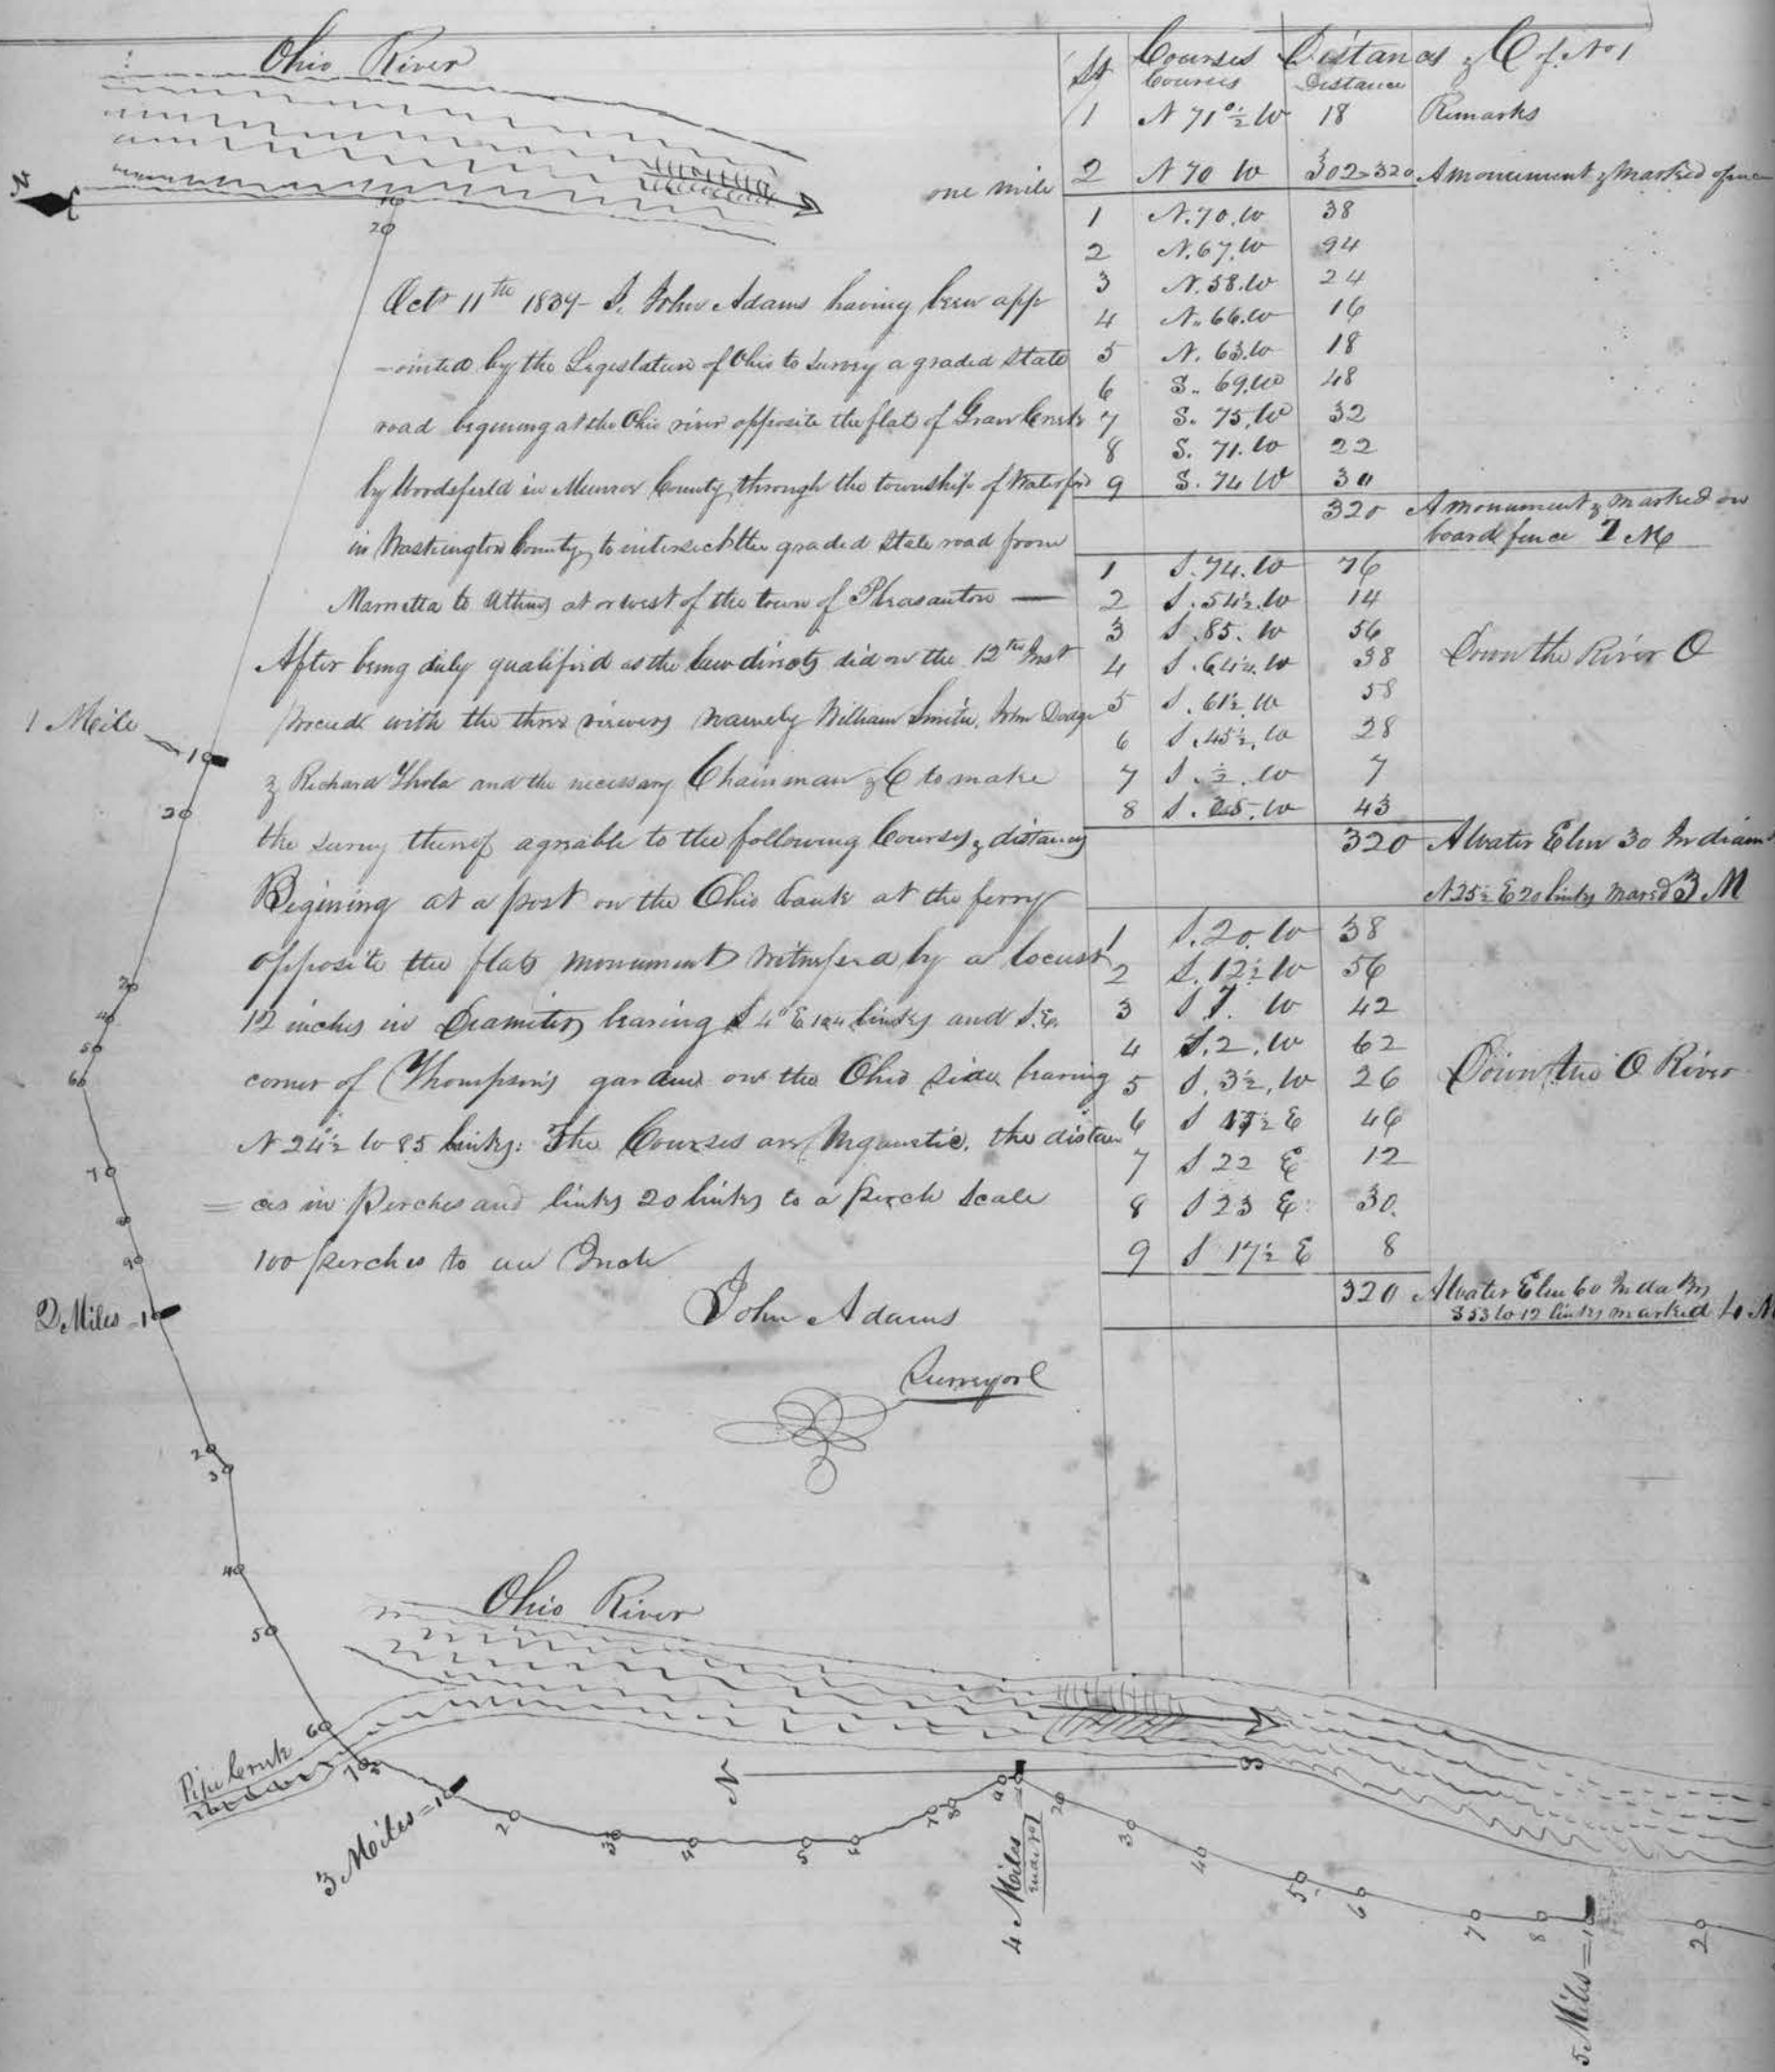 Ohio River
N
10
20
Oct 11th 1839 - I, John Adams having been app
-ointed by the Legislature of Ohio to survey a graded State
road begining at the Ohio river opposite the flats of Grave Creek
by Woodsfield in Munroe County through the township of Waterford
in Washington County, to intersect the graded state road from
Marietta to Athens at or west of the town of Pleasanton —
After being duly qualified as the law directs did on the 12th Inst
proceede with the three viewers namely William Smith, John Dodge
& Richard and the necessary Chainman &C to make
the survey thereof agreable to the following Courses & distances
Begining at a post on the Ohio bank at the ferry
opposite the flats monument Witnessed by a locust
12 inches in Diameter bearing S 4° E 124 links and S.E.
corner of Thompson's garden on the Ohio side bearing
N 24½ W 85 links: The Courses are Magnetic, the distan
= ces in Perches and links 20 links to a perch Scale
100 perches to an Inch
John Adams
Surveyor
Courses Distances & C of. No 1
St Courses Distance
1 N 71°½ W 18 Remarks
one mile 2 N 70 W 302=320 A monument & marked
1 N. 70. W 38
2 N. 67. W 94
3 N. 58. W 24
4 N. 66. W 16
5 N. 63. W 18
6 S. 69. W 48
7 S. 75. W 32
8 S. 71. W 22
9 S. 74 W 30
320 A monument & marked on
board fence 2 M
1 S. 74. W 76
2 S. 54½. W 14
3 S. 85. W 56
4 S. 64½. W 38 Down the River O
5 S. 61½. W 58
6 S. 45½. W 28
7 S. ½. W 7
8 S. 25. W 43
320 A Water Elm 30 In diam
N 25½ E 20 links marked 3 M
1 S. 20. W 38
2 S. 12½ W 56
3 S 7. W 42
4 S. 2. W 62
5 S. 3½. W 26 Down the O River
6 S 17½ E 46
7 S 22 E 12
8 S 23 E. 30.
9 S 17½ E 8
320 A Water Elm 60 In
S 53 W 12 links marked 4 M
1 Mile
10
20
30
40
50
60
70
80
90
2 Miles = 10
20
30
40
50
60
70
Ohio River
Pipe Creek
3 Miles = 10
20
30
40
50
60
70
80
90
N
S
4 Miles
20
30
40
50
60
70
80
5 Miles = 10
20